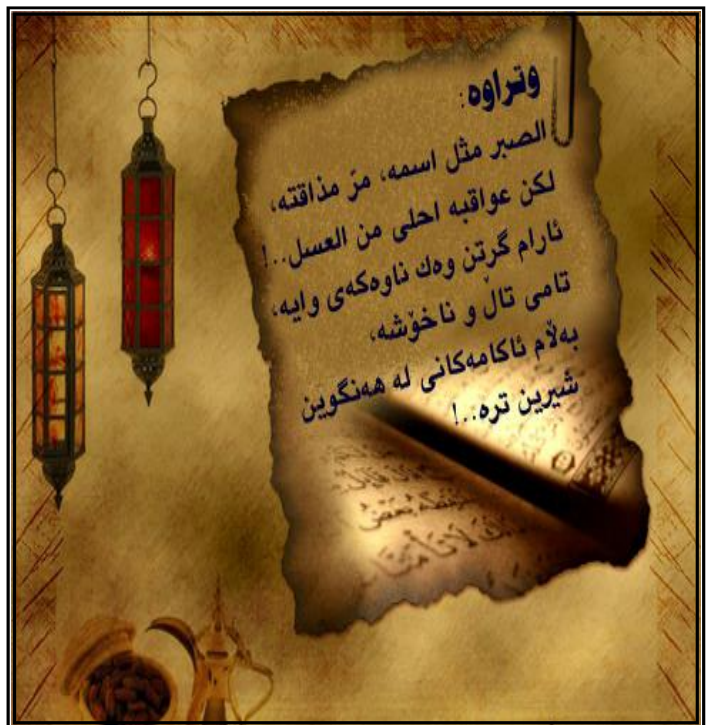 وتراوه:
الصبر مثل اسمه، مرّ مذاقته،
لكن عواقبه احلى من العسل..!
ئارام گرتن وەك ناوەكەی وایە،
تامی تاڵ و ناخۆشە،
بەڵام ئاكامەكانی لە هەنگوین
شیرین ترە..!
بعض
لا تأمنا